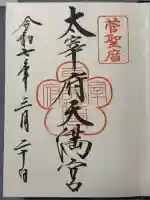 菅聖廟
太宰府天満宮
令和七年三月二十日